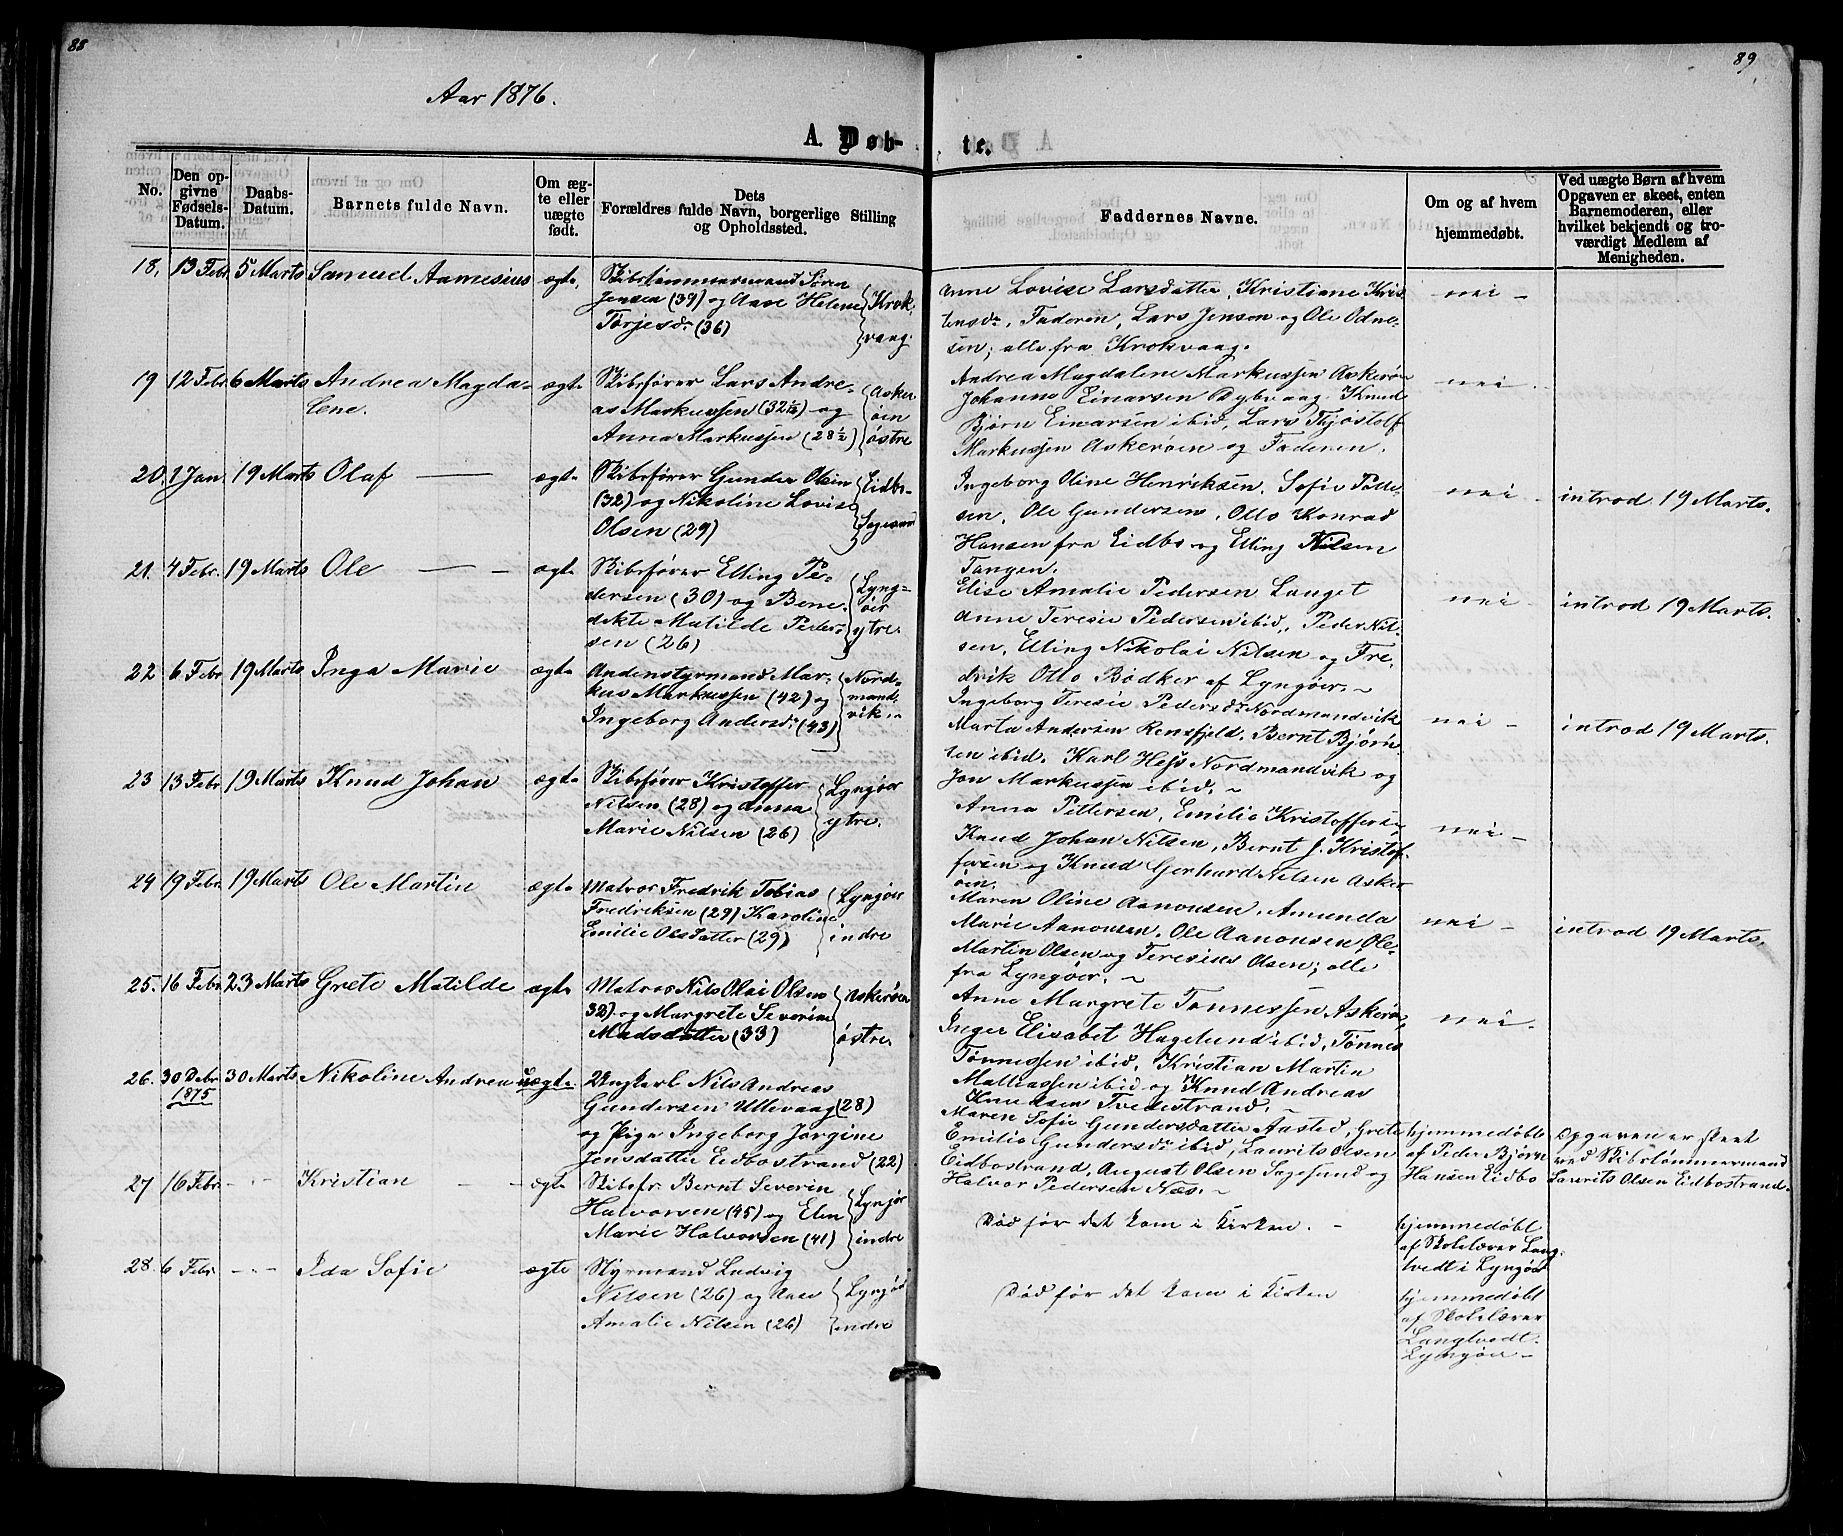 88
89
Aar 1876.
A. Døb-
te.
No.
Den op-
givne
Fødsels-
Datum.
Daabs-
Datum.
Barnets fulde Navn.
Om æg-
te eller
uægte
født.
Dets
Forældres fulde Navn, borgerlige Stilling
og Opholdssted.
Faddernes Navne.
Om og af hvem
hjemmedøbt.
Ved uægte Børn af hvem
Opgaven er skeet, enten
Barnemoderen, eller
hvilket bekjendt og tro-
værdigt Medlem af
Menigheden.
18. 13 Febr. 5 Marts Samuel Aamesius ægte,
Skibstømmermand Søren
Jensen (39) og Aase Helene
Torjesdr (36)
Krok-
vaag.
Anne Lovise Larsdatter, Kristiane Kris-
tensdr, Faderen, Lars Jenson og Ole Odne-
sen; alle fra Krokvaag.
nei -
19 12 Febr 6 Marts Andrea Magda-
lene.
ægte
Skibsfører Lars Andre-
as Markussen (32½) og
Anna Markussen (28½)
Asker
øien
østre
Andrea Magdalene Markussen Askerøen
Johanne Einarsen Dybvaag. Knud
Bjørn Einarsen ibid, Lars Thjøstolf
Markussen Askerøen og Faderen.
nei -
20. 1 Jan 19 Marts Olaf ægte
Skibsfører Gunder Olsen
(32) og Nikoline Lovise
Olsen (29)
Eidbo-
Sagesund
Ingeborg Oline Henriksen. Sofie Peder-
sen, Ole Gundersen, Otto Konrad
Hansen fra Eidbo og Elling Nilsen
Tangen.
nei -
introd 19 Marts.
21. 4 Febr. 19 Marts Ole ægte
Skibsfører Elling Pe-
dersen (30) og Bene-
dikte Matilde Peder-
sen (26)
Lyng-
øer
ytre.
Elise Amalie Pedersen Langet
Anne Teresie Pedersen ibid, Peder Nil-
sen, Elling Nikolai Nilsen og Fre-
drik Otto Bødker af Lyngøer.
nei -
introd 19 Marts.
22 6 Febr 19 Marts Inga Marie ægte
Andenstyrmand Mar-
kus Markussen (42) og
Ingeborg Andersdr (43)
Nord-
mand-
vik.
Ingeborg Teresie Pedersdr Nordmandvik
Marta Andersen Rensfjeld. Bernt Bjørn-
sen ibid. Karl Hess Nordmandvik og
Jon Markussen ibid.
nei -
introd 19 Marts.
23 13 Febr 19 Marts Knud Johan ægte
Skibsfører Kristoffer
Nilsen (28) og Anna
Marie Nilsen (26)
Lyngøer
ytre.
Anna Pettersen, Emilie Kristoffersen
Knud Johan Nilsen, Bernt J. Kristof-
fersen og Knud Gerhard Nilsen Asker
øen.
nei -
24 19 Febr. 19 Marts Ole Martin ægte
Matros Fredrik Tobias
Fredriksen (29) Karoline
Emilie Olsdatter (29)
Lyngøer
indre
Maren Oline Aanonsen. Amunda
Marie Aanonsen. Ole Aanonsen Ole-
Martin Olsen og Teresius Olsen; alle
fra Lyngøer.
nei -
introd 19 Marts.
25. 16 Febr. 23 Marts Grete Matilde ægte
Matros Nils Olai Olsen
32) og Margrete Severine
Madsdatter (33)
Askerøen
østre.
Anne Margrete Tønnessen Askerøen
Inger Elisabet Hagelund ibid, Tønnes
Tønnessen ibid. Kristian Martin
Matiassen ibid og Knud Andreas
Knudsen Tvedestrand.
nei.
26. 30 Debr 30 Marts Nikoline Andrea uægte
1875
Ungkarl Nils Andreas
Gundersen Ullevaag (28)
og Pige Ingeborg Jørgine
Jensdatter Eidbostrand (22)
Maren Sofie Gundersdatter Aasted, Grete
Emilie Gundersdr ibid, Laurits Olsen
Eidbostrand, August Olsen Sagesund og
Halvor Pedersen Næs.
hjemmedøbt
af Peder Bjørn
Hansen Eidbo
Opgaven er skeet
ved Skibstømmermand
Laurits Olsen Eidbostrand.
27 16 Febr. Kristian ægte
Skibsfr. Bernt Severin
Halvorsen (45) og Elen
Marie Halvorsen (41)
Lyngør
indre
Død før det kom i Kirken.
hjemmedøbt
af Skolelærer Lang-
tvedt i Lyngøer
28. 6 Febr. Ida Sofie ægte
Styrmand Ludvig
Nilsen (26) og Aase
Amalie Nilsen (26)
Lyngør
indre
Død før det kom i Kirken
hjemmedøbt
af Skolelærer
Langtvedt.
Lyngøer